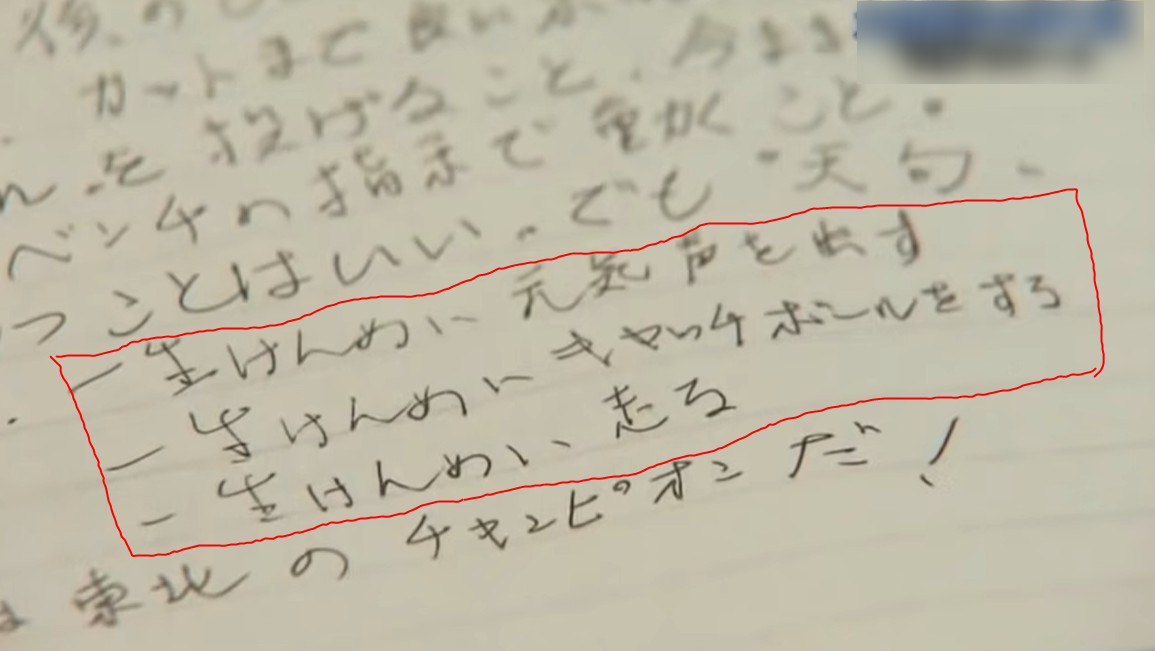 後の
カットまで良い
を投げること、今まま
ベンチの指示で動くこと。
つことはいい。でも・天句、
一生けんめい元気声を出す
一生けんめいキャッチボールをする
一生けんめい走る
東北のチャンピオンだ!